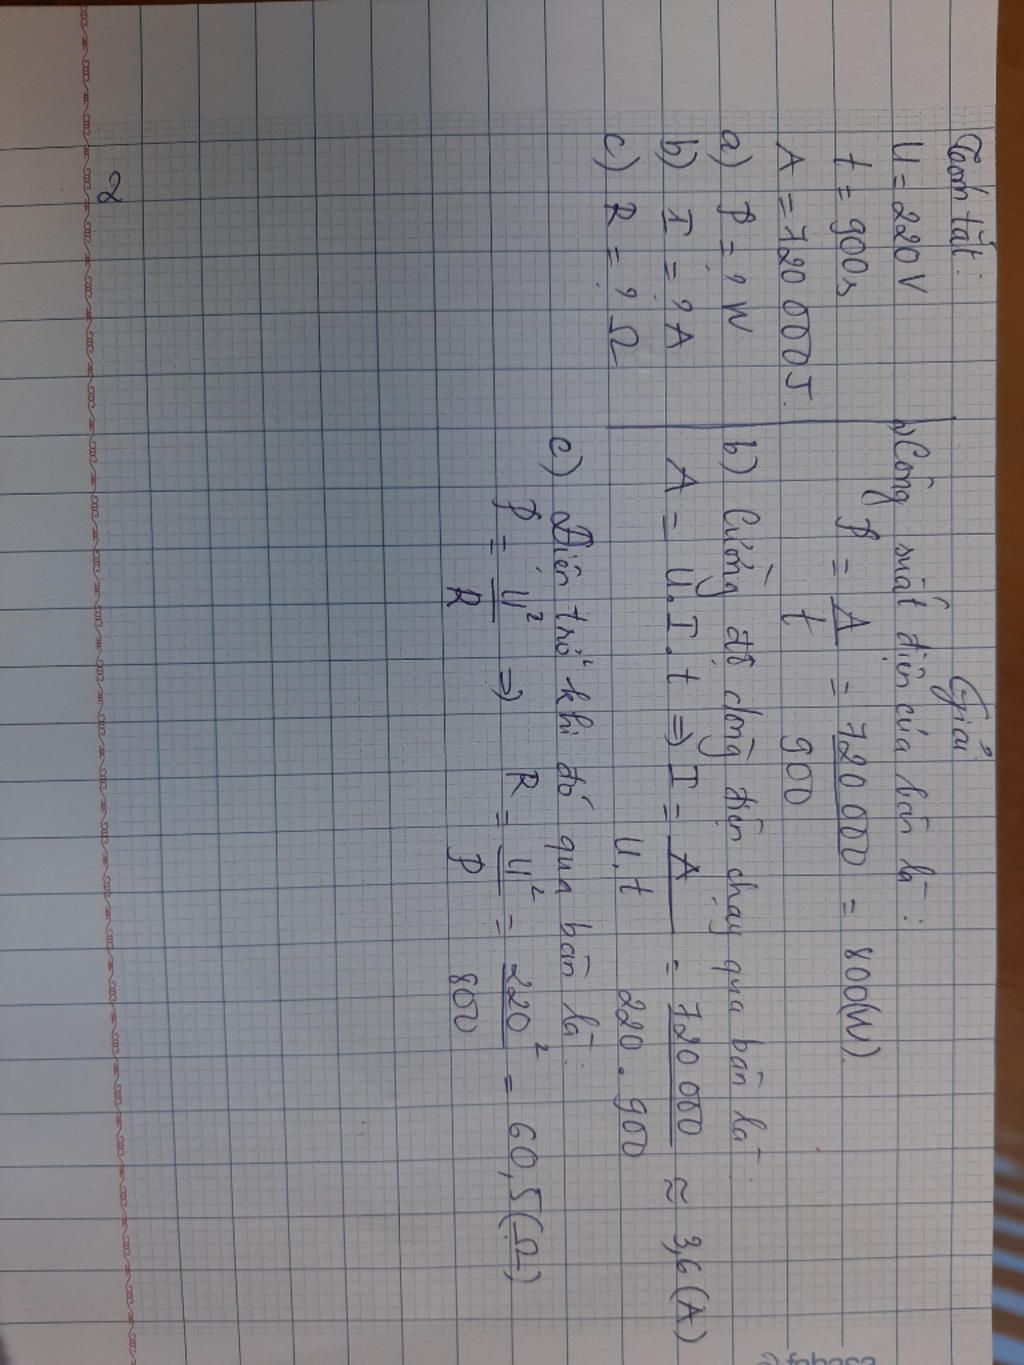 Tóm tắt:
U = 220V
t = 900s
A = 720 000J.
a) P = ? W
b) I = ? A
c) R = ? Ω
Giải
a) Công suất điện của bàn là:
P = A/t = 720 000/900 = 800(W)
b) Cường độ dòng điện chạy qua bàn là
A = U.I.t => I = A/U.t = 720 000/220.900 ≈ 3,6(A)
c) Điện trở khi đó qua bàn là:
P = U²/R => R = U²/P = 220²/800 = 60,5(Ω)
2